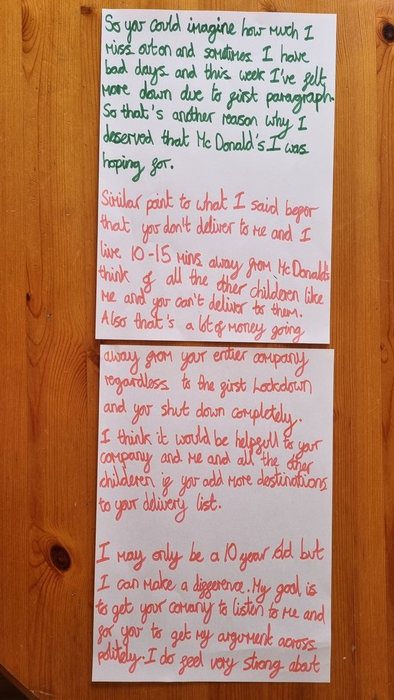 So you could imagine how much I
miss orton and sometimes I have
bad days and this week I've felt
more down due to first paragraph.
So that's another reason why I
deserved that McDonald's I was
hoping for.
Similar point to what I said befor
that you don't deliver to me and I
live 10-15 mins away from McDonald's
think of all the other childeren like
me and you can't deliver to them.
Also that's a lot of money going
away from your entier company
regardless to the first Lockdown
and you shut down completely.
I think it would be helpfull to your
company and me and all the other
childeren if you add more destinations
to your delivery list.
I may only be a 10 year old but
I can make a difference. My goal is
to get your comany to listen to me and
for you to get my argument across
politely. I do feel very strong about